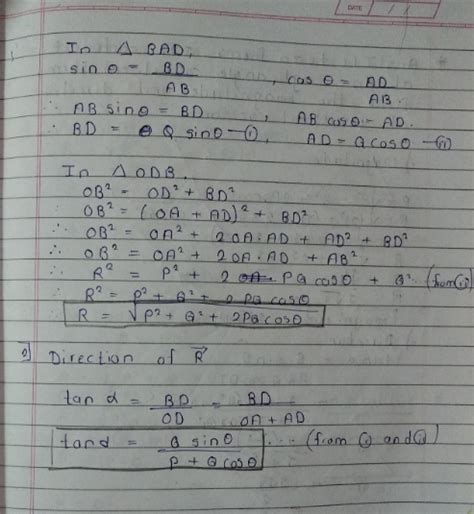 DATE / /
In △ BAD.
sin θ = BD/AB , cos θ = AD/AB.
∴ AB sin θ = BD , AB cos θ = AD.
∴ BD = Q sin θ —(i), AD = Q cos θ —(ii)
In △ ODB.
OB² = OD² + BD²
∴ OB² = (OA + AD)² + BD²
∴ OB² = OA² + 2OA·AD + AD² + BD²
∴ OB² = OA² + 2OA·AD + AB²
∴ R² = P² + 2 PQ cos θ + Q² (from (ii))
∴ R² = P² + Q² + 2PQ cos θ
R = √P² + Q² + 2PQ cos θ
2] Direction of R⃗
tan α = BD/OD = BD/OA + AD
tan α = Q sin θ/P + Q cos θ .... (from (i) and (ii))